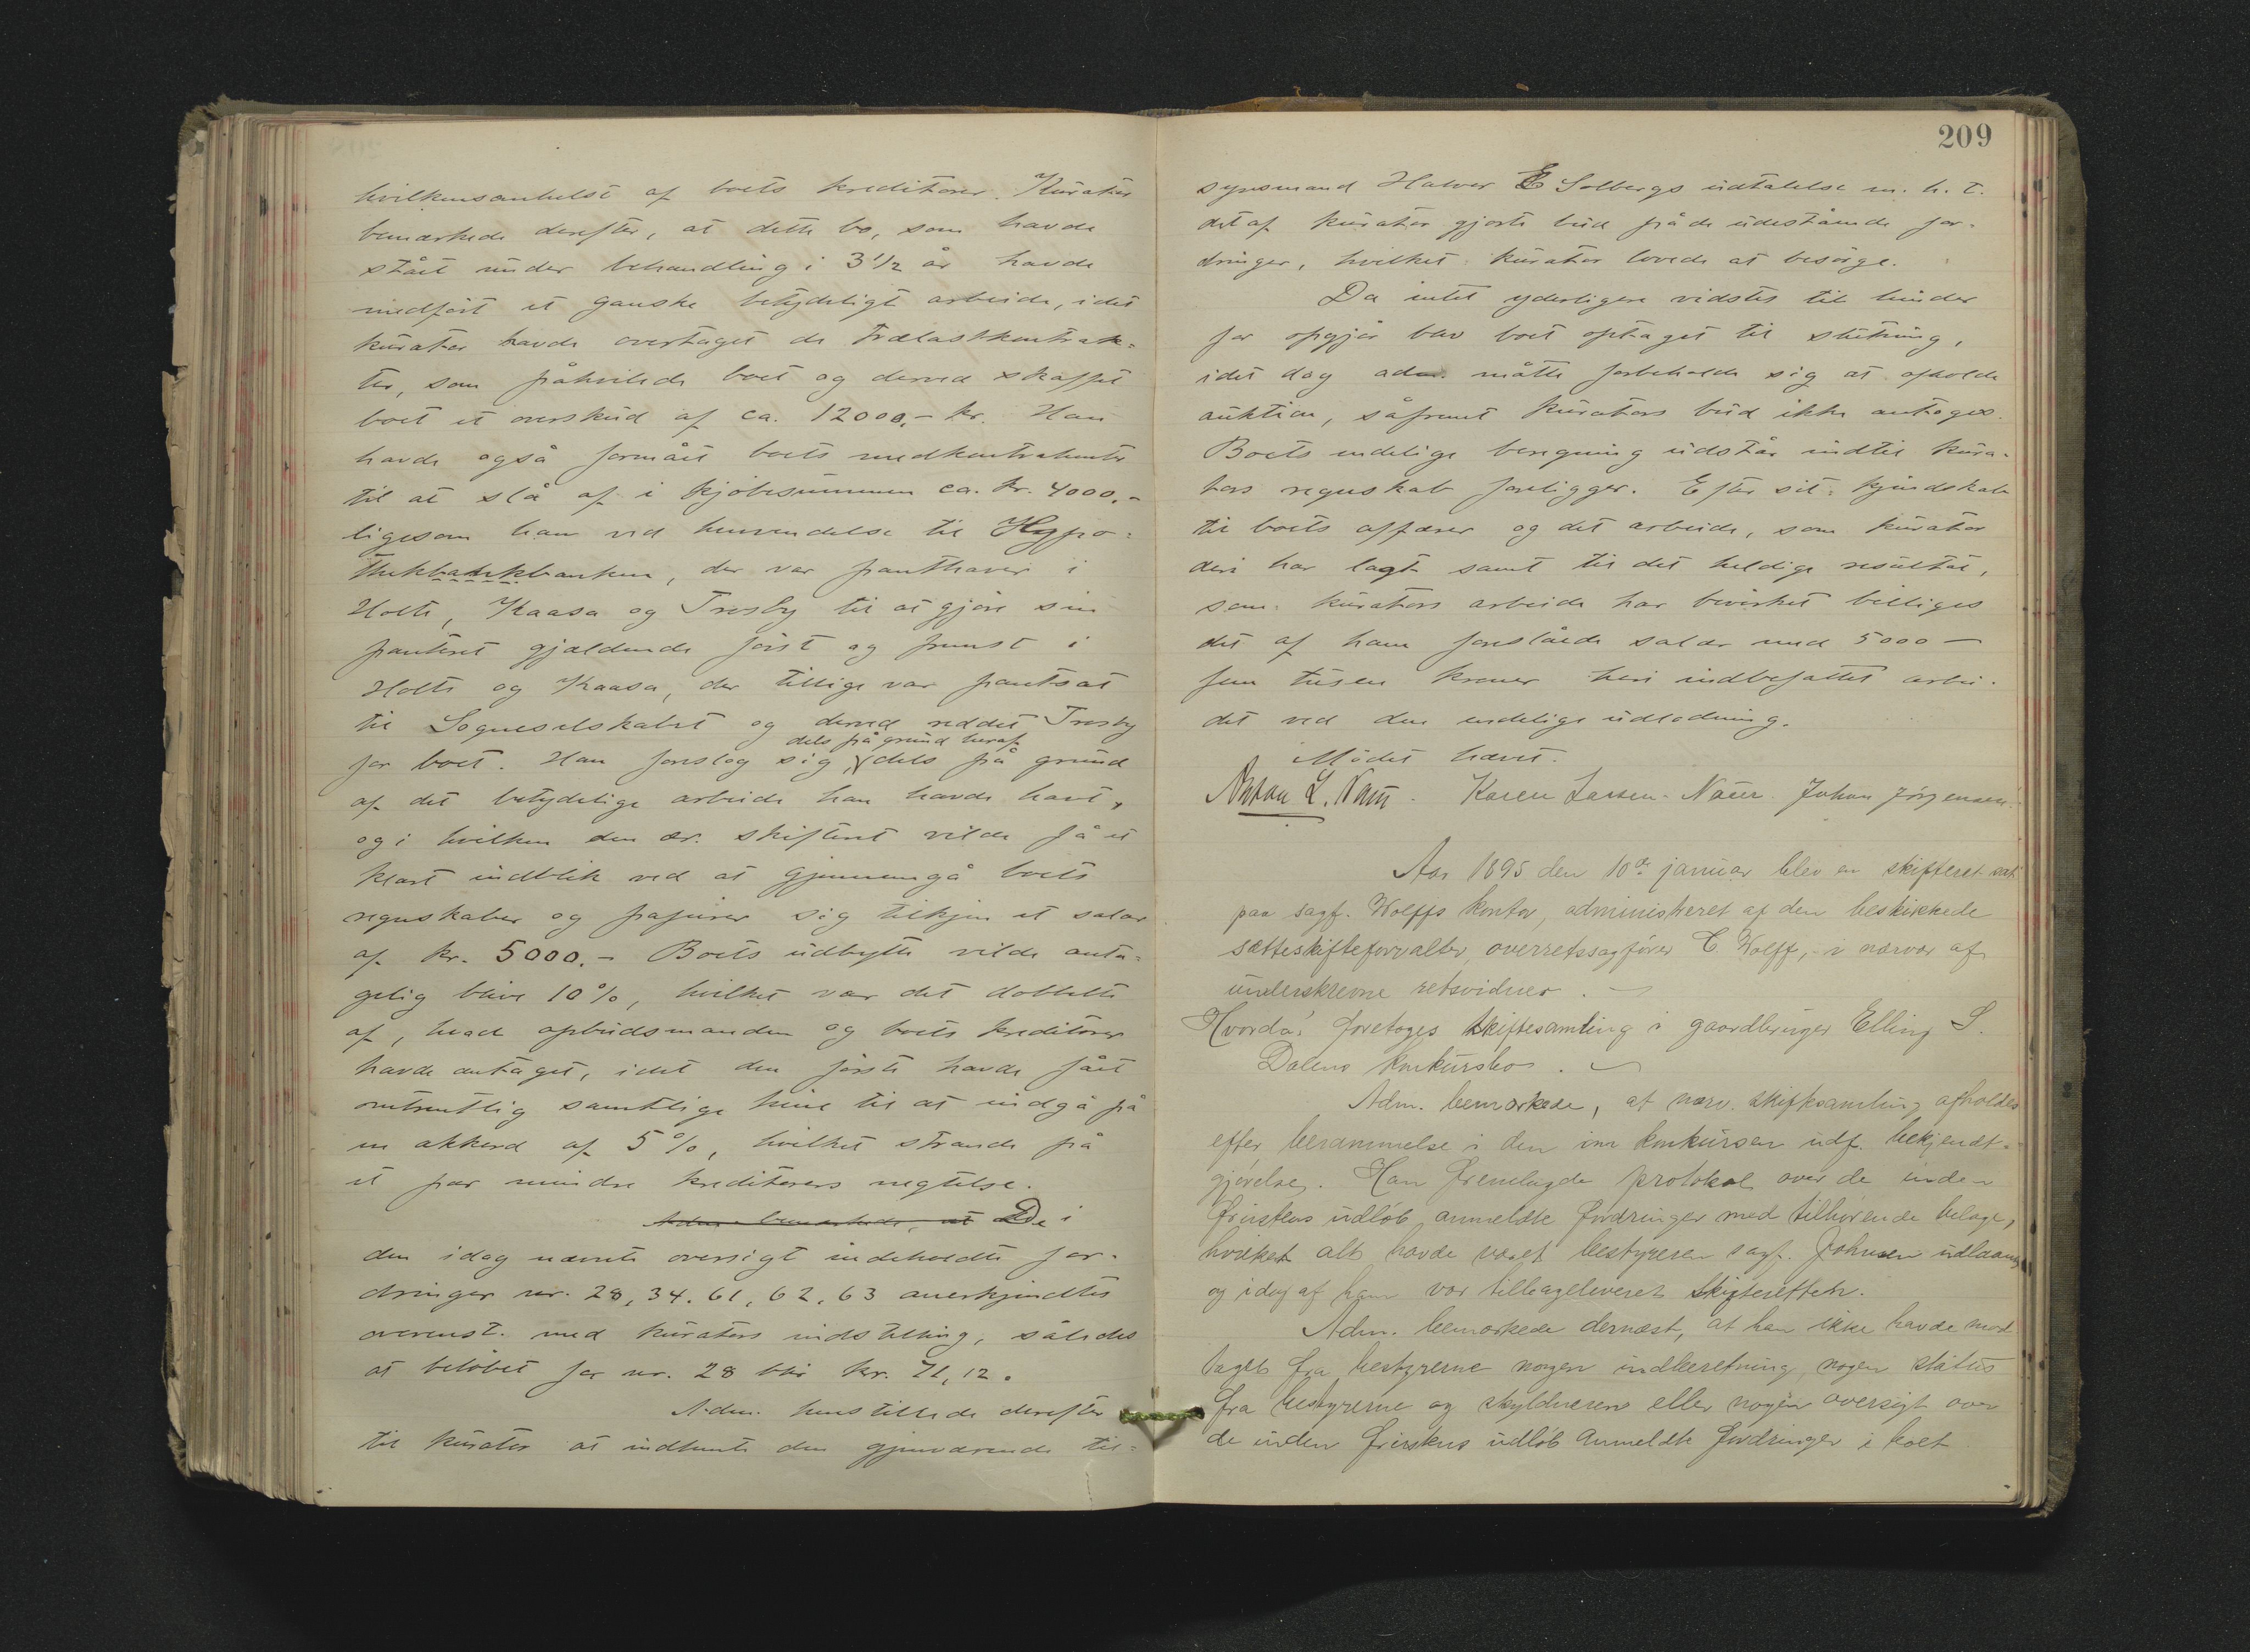 hvilkensomhelst af boets kreditorer. Kurator
bemærkede derefter, at dette bo, som havde
stået under behandling i 3 1/2 år havde
medført et ganske betydeligt arbeide, idet
kurator havde overtaget de trælastkontrak=
ter, som påhvilede boet og derved skaffet
boet et overskud af ca. 12000,- kr. Han
havde også formået boets medkontrahenter
til at slå af i kjøbesummen ca. kr. 4000.-
ligesom han ved henvendelse til Hypo=
thekbankbanken, der var panthaver i
Holte, Kaasa og Trosby til at gjøre sin
panteret gjældende først og fremst i
Holte og Kaasa, der tillige var pantsat
til Sogneselskabet og derved reddet Trosby
dels på grund heraf
for boet. Han foreslog sig, dels på grund
af det betydelige arbeide han havde havt,
og i hvilken den ær. skifteret vilde få et
klart indblik ved at gjennemgå boets
regnskaber og papirer sig tilkjen et salær
af kr. 5000.- Boets udbytte vilde anta=
gelig blive 10%, hvilket var det dobbelte
af, hvad opbudsmanden og boets kreditorer
havde antaget, idet den første havde fået
omtrentlig samtlige hine til at indgå på
en akkord af 5%, hvilket strande på
et par mindre kreditorers negtelse.
Adm. bemærkede, at De i
den idag nævnte oversigt indeholdte for-
dringer nr. 28, 34. 61, 62, 63 anerkjendtes
overenst. med kurators indstilling, således
at beløbet for nr. 28 blir kr. 71,12.
Adm. henstillede derefter
til kurator at indhente den gjenværende til=
209
synsmand Halvor E Solbergs udtalelse m. h. t.
det af kurator gjorte bud på de udestående for-
dringer, hvilket kurator lovede at besørge.
Da intet yderligere vidstes til hinder
for opgjør blev boet optaget til slutning,
idet dog adm. måtte forbeholde sig at afholde
auktion, såfremt kurators bud ikke antoges.
Boets endelige beregning udstår indtil kura-
tors regnskab foreligger. Efter sit kjendskab
til boets affærer og det arbeide, som kurator
deri har lagt samt til det heldige resultat,
som kurators arbeide har bevirket billiges
det af ham foreslåede salær med 5000 —
fem tusen kroner heri indbefattet arbei-
det ved den endelige udlodning.
Mødet hævet.
L. Karen Larsen-Naur Johan Jørgensen.
Aar 1895 den 10de januar blev en skifteret sat
paa sagf. Wolffs kontor, administreret af den beskikkede
sætteskifteforvalter, overretssagfører C. Wolff, - i nærvær af
underskrevne retsvidner. -
Hvorda: foretoges skiftesamling i gaardbruger Elling S.
Dalens konkursbo.
Adm. bemærkede, at nærv. skiftesamling afholdes
efter berammelse i den om konkursen udf. bekjendt-
gjørelse. Han fremlagde protokol over de inden
fristens udløb anmeldte fordringer med tilhørende belage,
hvilket alt havde været bestyreren sagf. Johnsen udlaant
og idag af ham var tilbageleveret skifteretten.
Adm. bemærkede dernæst, at han ikke havde mod
taget fra bestyrerne nogen indberetning, nogen status
fra bestyrerne og skyldneren eller nogen oversigt over
de inden fristens udløb anmeldte fordringer i boet